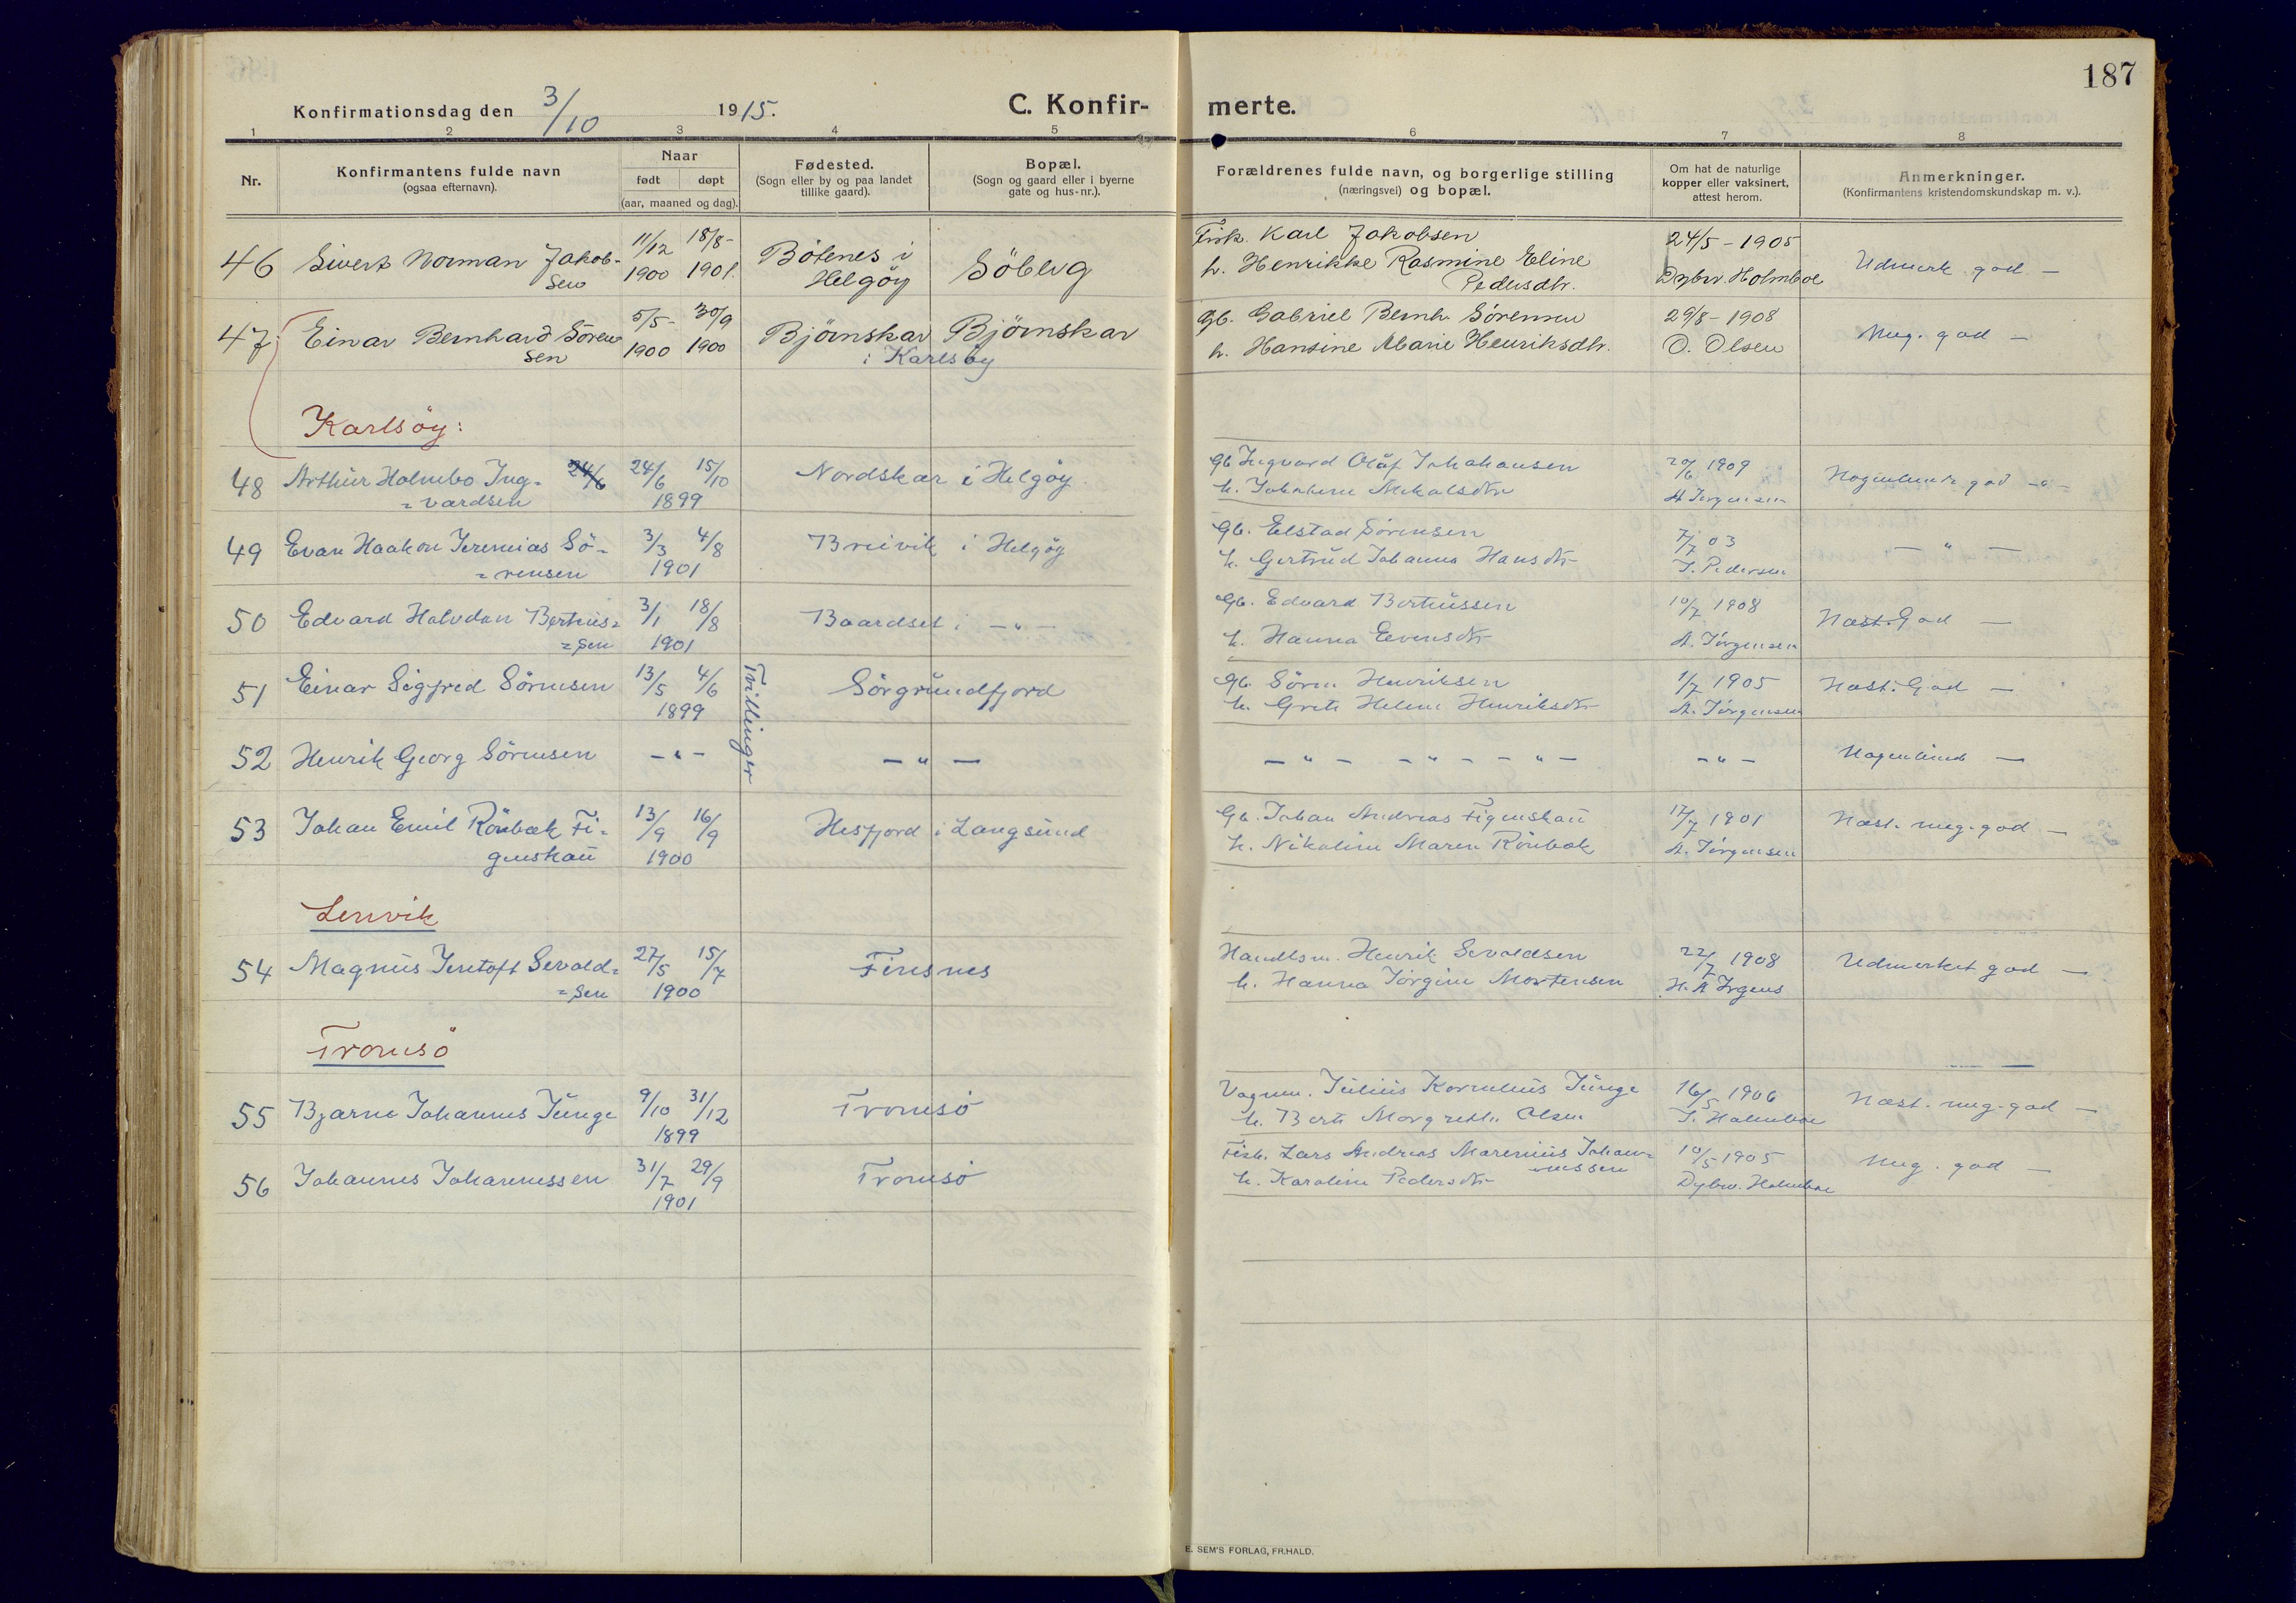 187
Konfirmationsdag den 3/10 1915. C. Konfirmerte.
1 2 3 4 5 6 7 8
Nr.
Konfirmantens fulde navn
(ogsaa efternavn).
Naar
født døpt
(aar, maaned og dag).
Fødested.
(Sogn eller by og paa landet
tillike gaard).
Bopæl.
(Sogn og gaard eller i byerne
gate og hus-nr.).
Forældrenes fulde navn, og borgerlige stilling
(næringsvei) og bopæl.
Om hat de naturlige
kopper eller vaksinert,
attest herom.
Anmerkninger.
(Konfirmantens kristendomskundskap m. v.).
46 Sivert Norman Jakob- 11/12 18/8- Botenes i Söblug Fisk. Karl Jakobsen 24/5 - 1905 Udmerk. god -
sen 1900 1901. Helgöy h. Henrikke Rasmine Eline Dybw. Holmboe
Pedersdtr.
47 Einar Bernhard Sören 5/5- 30/9 Björnskar Björnskar Gb. Gabriel Bernh. Sörensen 29/8 - 1908 Meg. god -
sen 1900 1900 i Karlsöy h. Hansine Marie Henriksdtr. O. Olsen
Karlsöy:
48 Arthur Holmbo Ing- 24/6 24/6 15/10 Nordskar i Helgöy Gb Ingvard Olaf Johahansen 20/6 1909 Nogenlunde god -"-
=vardsen 1899 h. Jakobine Mikalsdtr A Jörgensen
49 Evan Haakon Jeremias Sö- 3/3 4/8 Breivik i Helgöy Gb. Elstad Sörensen 7/7 03 - " -
=rensen 1901 h. Gertrud Johanna Hansdtr J. Pedersen
50 Edvard Halvdan Berthus= 3/1 18/8 Baardset i -"- Gb. Edvard Berthussen 10/7 1908 Næst. God -
=sen 1901 h. Hanna Evensdtr A. Jörgensen
51 Einar Sigfred Sörensen 13/5 4/6 Sörgrundfjord Gb. Sören Henriksen 1/7 1905 Næst. God -
1899 h. Grete Helene Henriksdtr A. Jörgensen
Tvillinger
52 Henrik Georg Sörensen -"- - " - - " - - " - - " - -"- Nogenlund -
53 Johan Emil Rönbæk Fi- 13/9 16/9 Hesfjord i Langsund Gb. Johan Andreas Figenskau 17/7 1901 Næst. meg. god -
genskau 1900 h. Nikoline Maren Rönbæk A. Jörgensen
Lenvik
54 Magnus Jentoft Sevald= 27/5 15/7 Finsnes Handlsm. Henrik Sevaldsen 22/7 1908 Udmerket god -
=sen 1900 h. Hanna Jörgine Mortensen H. A Irgens
Tromsö
55 Bjarne Johannes Junge 9/10 31/12 Tromsö Vognm. Julius Kornelius Junge 16/5 1906 Næst. meg. god -
1899 h. Berte Margrethe Olsen J. Holmboe
56 Johannes Johannessen 31/7 29/9 Tromsö Fisk. Lars Andreas Marenius Johan= 10/5 1905 Meg. god -
1901 nessen
h. Karoline Pedersdtr Dybw. Holmboe
E. SEM'S FORLAG, FR.HALD.